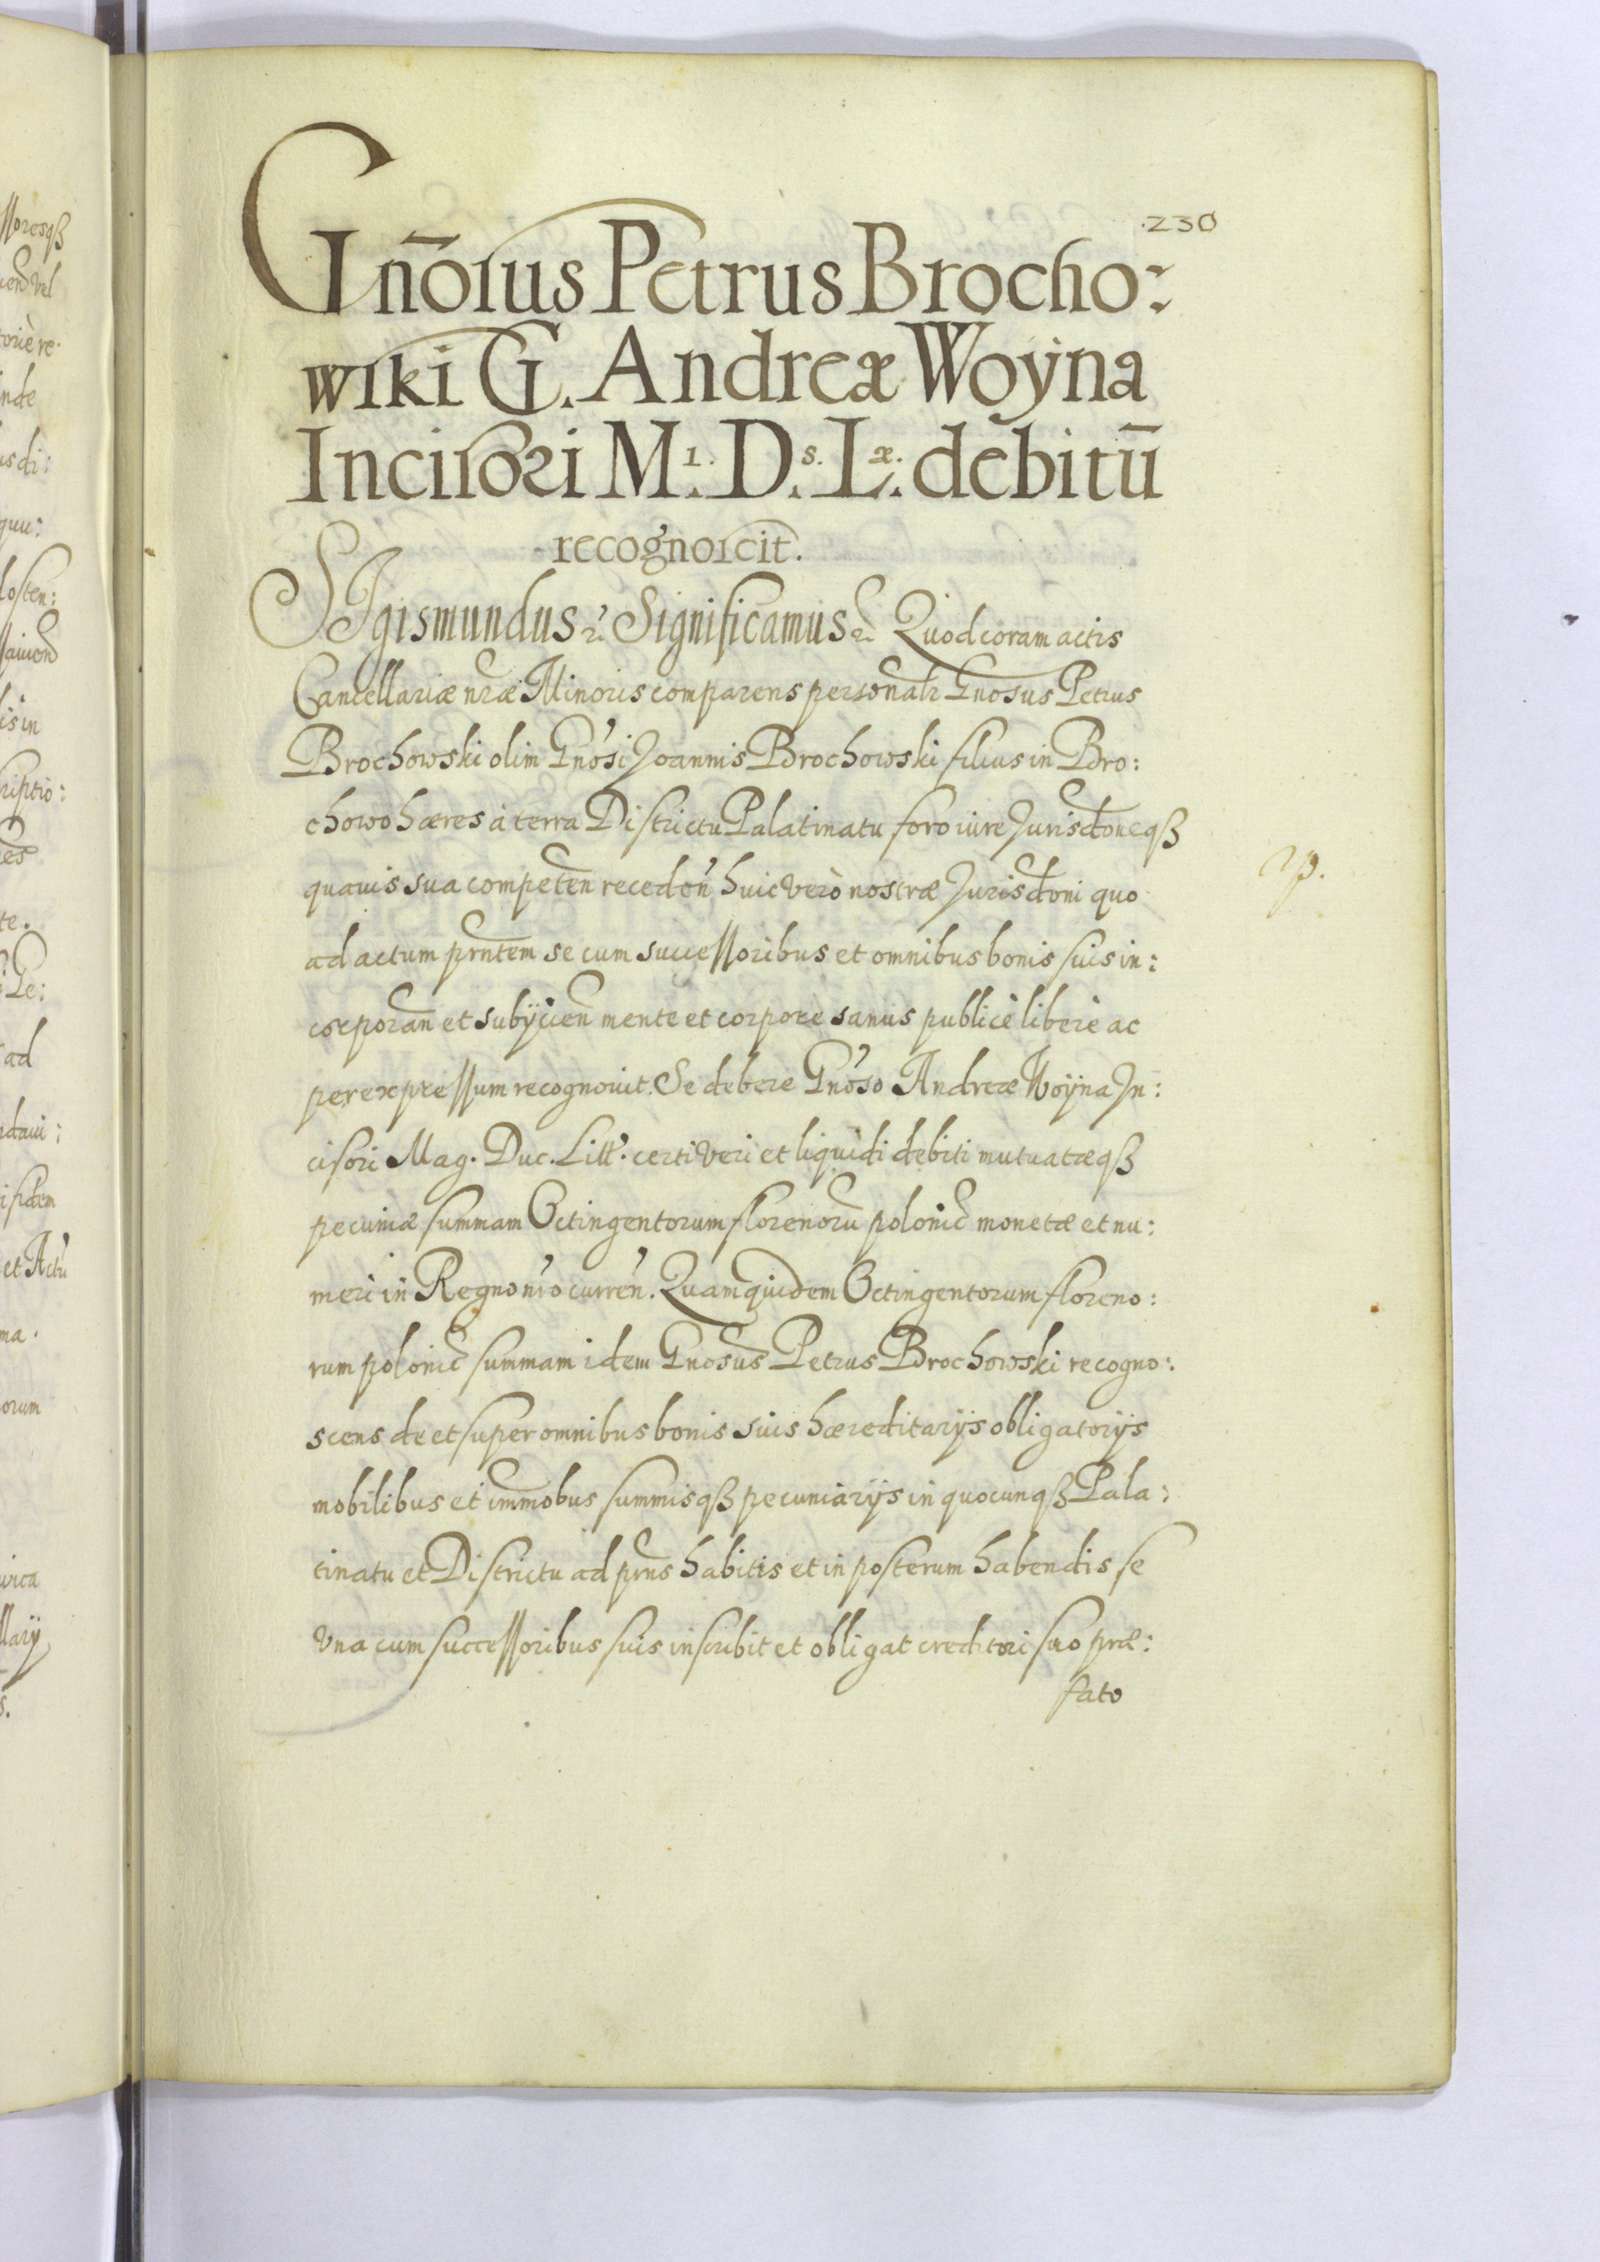 230
Gnõsus Petrus Brocho:
wski G. Andreæ Woÿna
Incisori M^1. D^s. L^æ. debitū
recognoscit.
SIgismundus Significamus Quod coram actis
Cancellariæ nræ Minoris comparens personalr Gnosus Petrus
Brochowski olim Gnosi Joannis Brochowski filius in Bro:
chowo hæres à terra Districtu Palatinatu foro iure Jurisdtoneqß
quavis sua competen receden huic verò nostræ Jurisdtoni quo
ad actum prntem se cum successoribus et omnibus bonis suis in:
corporan et subÿcien mente et corpore sanus publicè liberè ac
per expressum recognovit. Se debere Gnoso Andreæ Woÿna In:
cisori Mag. Duc. Litt. certi veri et liquidi debiti mutuatæqß
pecuniæ summam Octingentorum florenorũ polonic monetæ et nu:
meri in Regno nro curren. Quamquidem Octingentorum floreno:
rum polonic summam idem Gnosus Petrus Brochowski recogno:
scens de et super omnibus bonis suis hæreditarÿs obligatorÿs
mobilibus et immobus summisqß pecuniarÿs in quocunqß Pala:
tinatu et Districtu ad prns habitis et in posterum habendis se
vna cum successoribus suis inscribit et obligat creditori suo præ:
fato